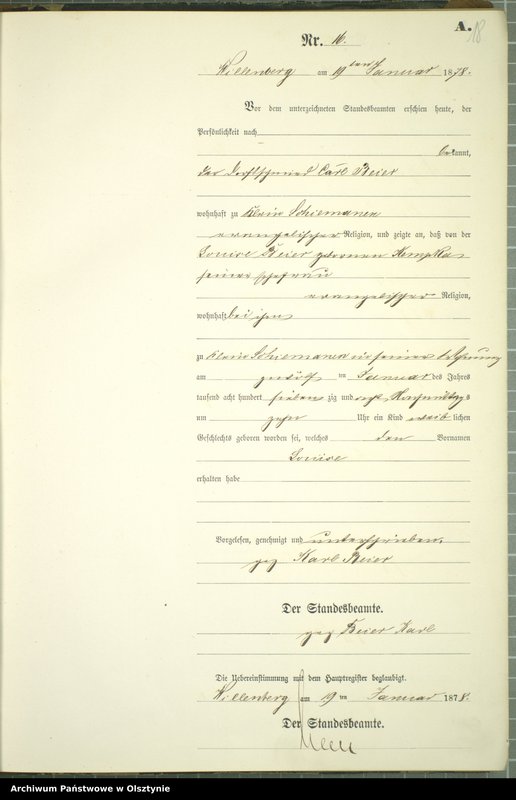 A.
18
Nr. 16.
Willenberg am 19ten Januar 1878.
Vor dem unterzeichneten Standesbeamten erschien heute, der
Persönlichkeit nach
bekannt,
der Carl Beier
wohnhaft zu Klein Schiemanen
evangelischer Religion, und zeigte an, daß von der
Louise Beier geborenen Kempka
seiner Ehefrau
evangelischer Religion,
wohnhaft bei ihm
zu Klein Schiemanen in seiner Wohnung
am zwölf ten Januar des Jahres
tausend acht hundert sieben zig und acht Nachmittags
um zehn Uhr ein Kind weib lichen
Geschlechts geboren worden sei, welches den Vornamen
Louise
erhalten habe
Vorgelesen, genehmigt und unterschrieben.
gez Karl Beier
Der Standesbeamte.
gez Karl
Die Uebereinstimmung mit dem Hauptregister beglaubigt.
Willenberg am 19 ten Januar 1878.
Der Standesbeamte.
Archiwum Państwowe w Olsztynie